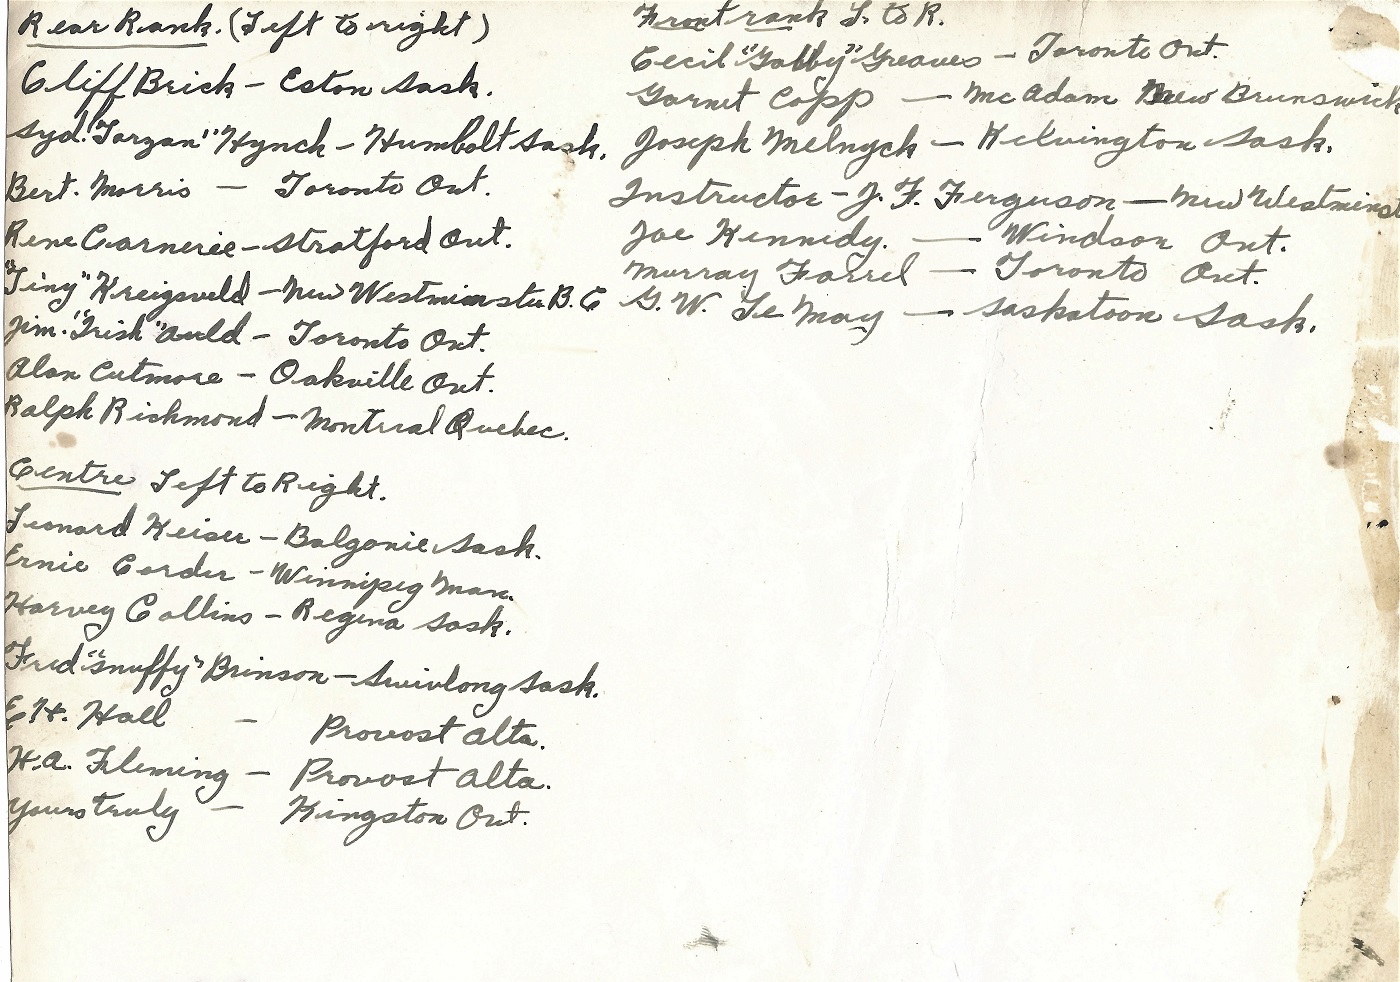 Rear Rank. (Left to right)
Cliff Brick - Eston Sask.
Syd. "Tarzan" Hynch - Humbolt Sask.
Bert. Morris - Toronto Ont.
Rene Carnerie - Stratford Ont.
"Tiny" Kreigsveld - New Westminster B.C
Jim. "Irish" Auld - Toronto Ont.
Alan Cutmore - Oakville Ont.
Ralph Richmond - Montreal Quebec.
Centre Left to Right.
Leonard Keiser - Balgonie Sask.
Ernie Corder - Winnipeg Man.
Harvey Collins - Regina Sask.
Fred "Snuffy" Brinson - Swivlong Sask.
E.H. Hall - Provost Alta.
H.A. Fleming - Provost Alta.
Yours truly - Kingston Ont.
Front rank L. to R.
Cecil "Gabby" Greaves - Toronto Ont.
Garnet Copp - McAdam New Brunswick
Joseph Melnyck - Kelvington Sask.
Instructor - J. F. Ferguson - New Westminst
Joe Kennedy. - Windsor Ont.
Murray Farrel - Toronto Ont.
G. W. Le May - Saskatoon Sask.